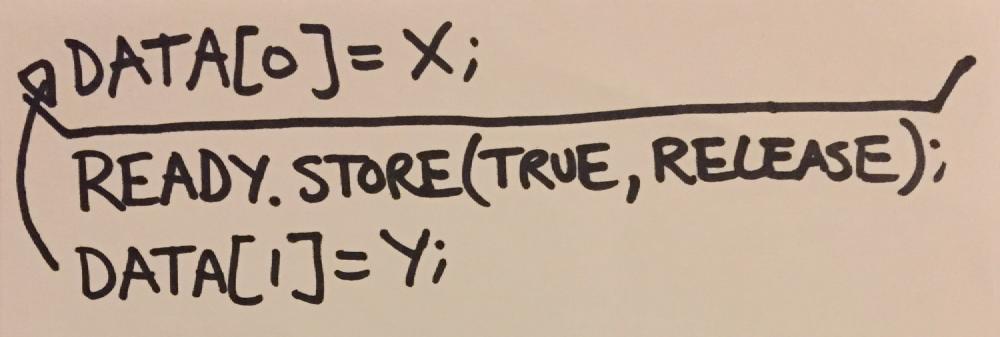 DATA[0]= X;
READY.STORE(TRUE, RELEASE);
DATA[1]= Y;